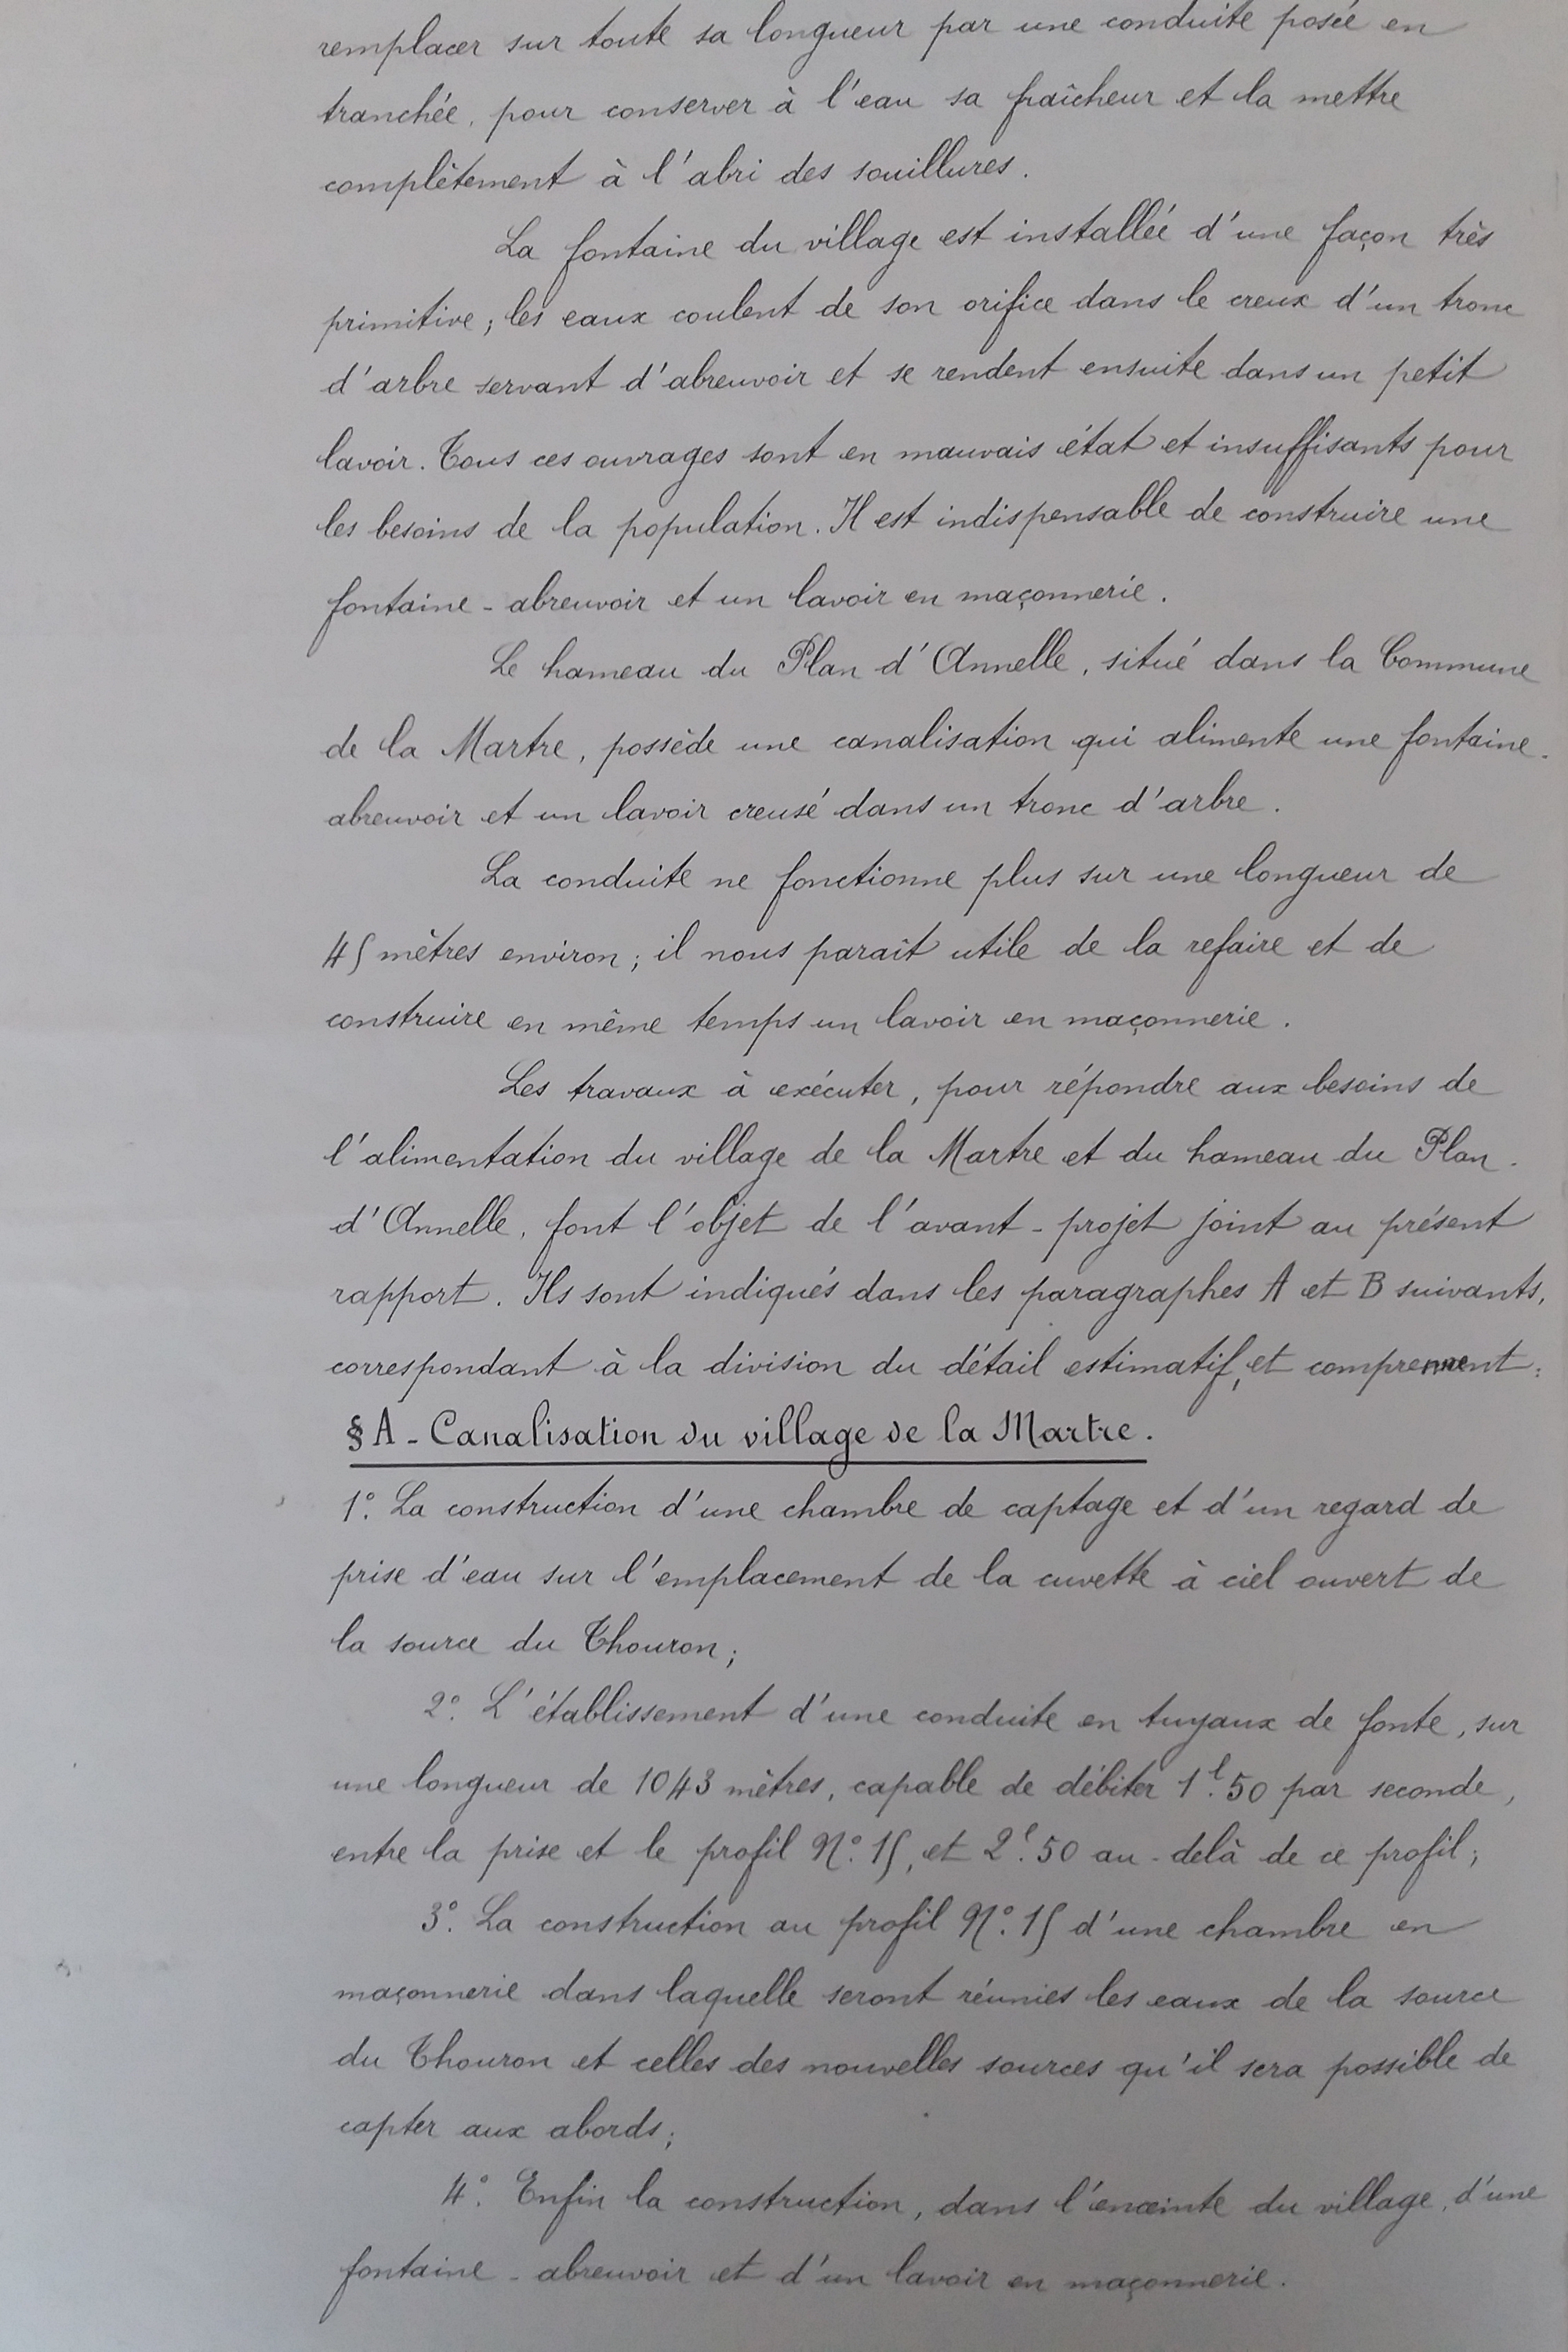 remplacer sur toute sa longueur par une conduite posée en
tranchée, pour conserver à l'eau sa fraîcheur et la mettre
complètement à l'abri des souillures.
La fontaine du village est installée d'une façon très
primitive ; les eaux coulent de son orifice dans le creux d'un tronc
d'arbre servant d'abreuvoir et se rendent ensuite dans un petit
lavoir. Tous ces ouvrages sont en mauvais état et insuffisants pour
les besoins de la population. Il est indispensable de construire une
fontaine - abreuvoir et un lavoir en maçonnerie.
Le hameau du Plan d'Annelle, situé dans la Commune
de la Martre, possède une canalisation qui alimente une fontaine-
abreuvoir et un lavoir creusé dans un tronc d'arbre.
La conduite ne fonctionne plus sur une longueur de
45 mètres environ ; il nous paraît utile de la refaire et de
construire en même temps un lavoir en maçonnerie.
Les travaux à exécuter, pour répondre aux besoins de
l'alimentation du village de la Martre et du hameau du Plan-
d'Annelle, font l'objet de l'avant-projet joint au présent
rapport. Ils sont indiqués dans les paragraphes A et B suivants,
correspondant à la division du détail estimatif, et comprennent :
§ A - Canalisation du village de la Martre.
1°. La construction d'une chambre de captage et d'un regard de
prise d'eau sur l'emplacement de la cuvette à ciel ouvert de
la source du Thouron ;
2°. L'établissement d'une conduite en tuyaux de fonte, sur
une longueur de 1043 mètres, capable de débiter 1l.50 par seconde,
entre la prise et le profil N°. 15, et 2l.50 au-delà de ce profil ;
3°. La construction au profil N°. 15 d'une chambre en
maçonnerie dans laquelle seront réunies les eaux de la source
du Thouron et celles des nouvelles sources qu'il sera possible de
capter aux abords ;
4°. Enfin la construction, dans l'enceinte du village, d'une
fontaine - abreuvoir et d'un lavoir en maçonnerie.